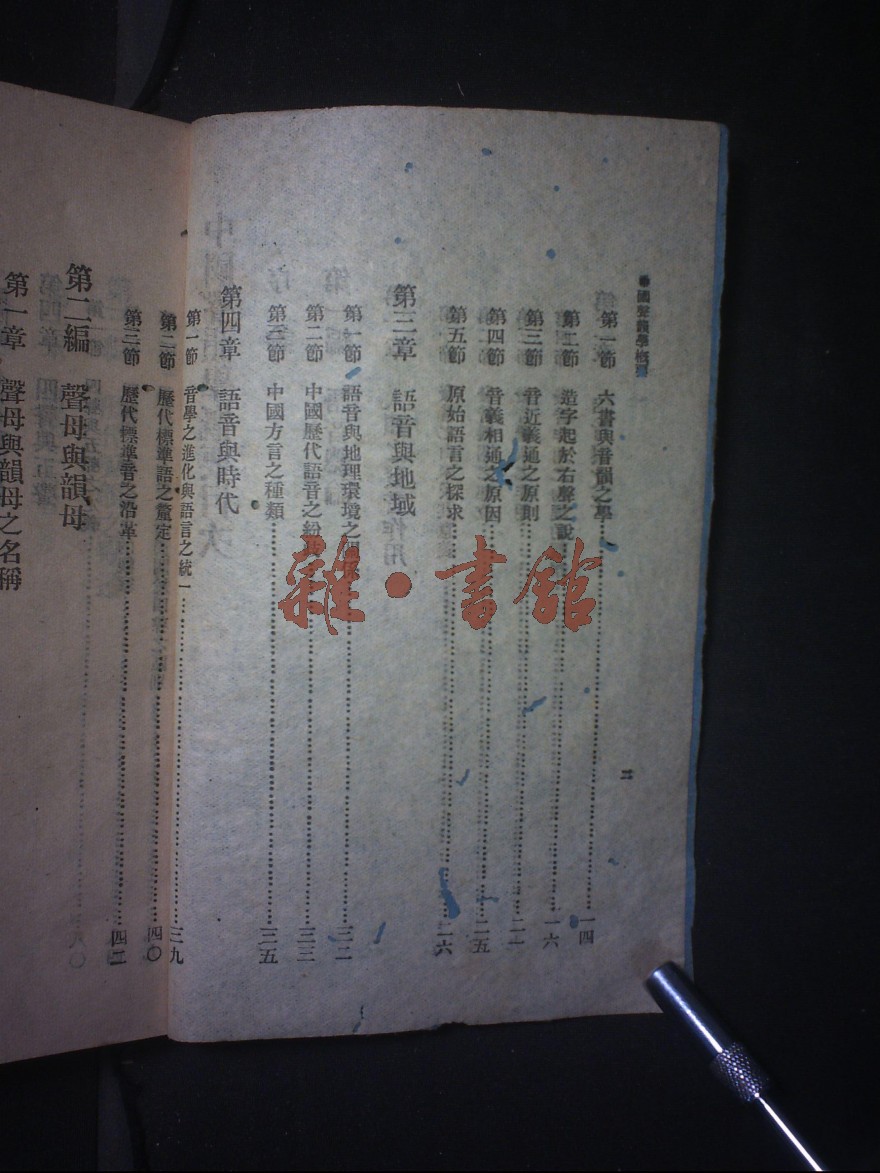 國聲韻學概要
二
第一節 六書與音韻之學……一四
第二節 造字起於右聲之說……一六
第三節 音近義通之原則……二一
第四節 音義相通之原因……二五
第五節 原始語言之探求……二六
第三章 語音與地域
第一節 語音與地理環境之……三二
第二節 中國歷代語音之紛……三三
第三節 中國方言之種類……三五
第四章 語音與時代
第一節 音學之進化與語言之統一……三九
第二節 歷代標準語之釐定……四〇
第三節 歷代標準音之沿革……四二
第二編 聲母與韻母
第一章 聲母與韻母之名稱
雜·書館